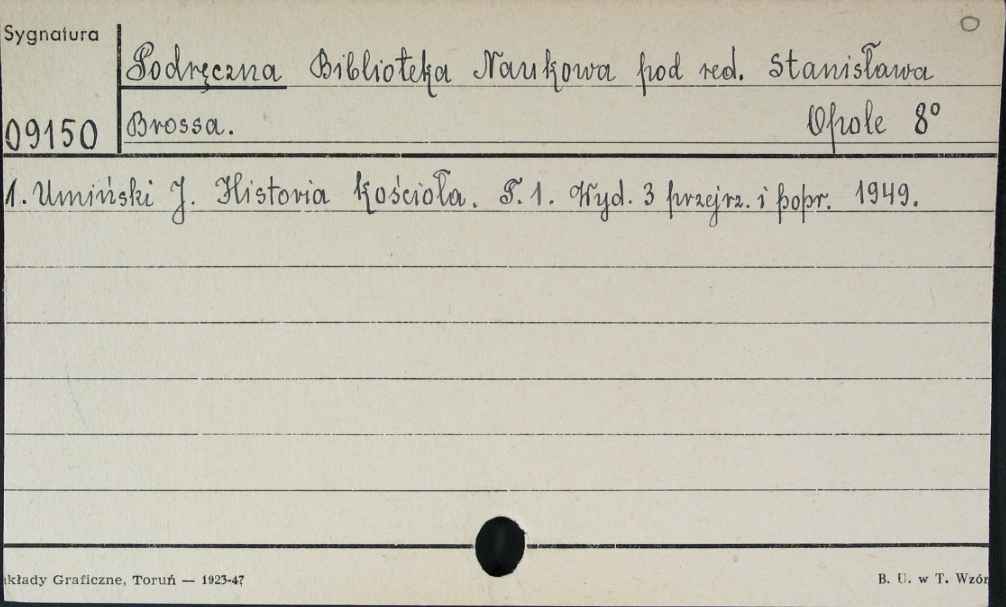 Sygnatura
Podręczna Biblioteka Naukowa pod red. Stanisława
09150 Brossa. Opole 8°
1. Umiński J. Historia Kościoła. T. 1. Wyd. 3 przejrz. i popr. 1949.
kłady Graficzne, Toruń — 1923-47
B. U. w T. Wzór